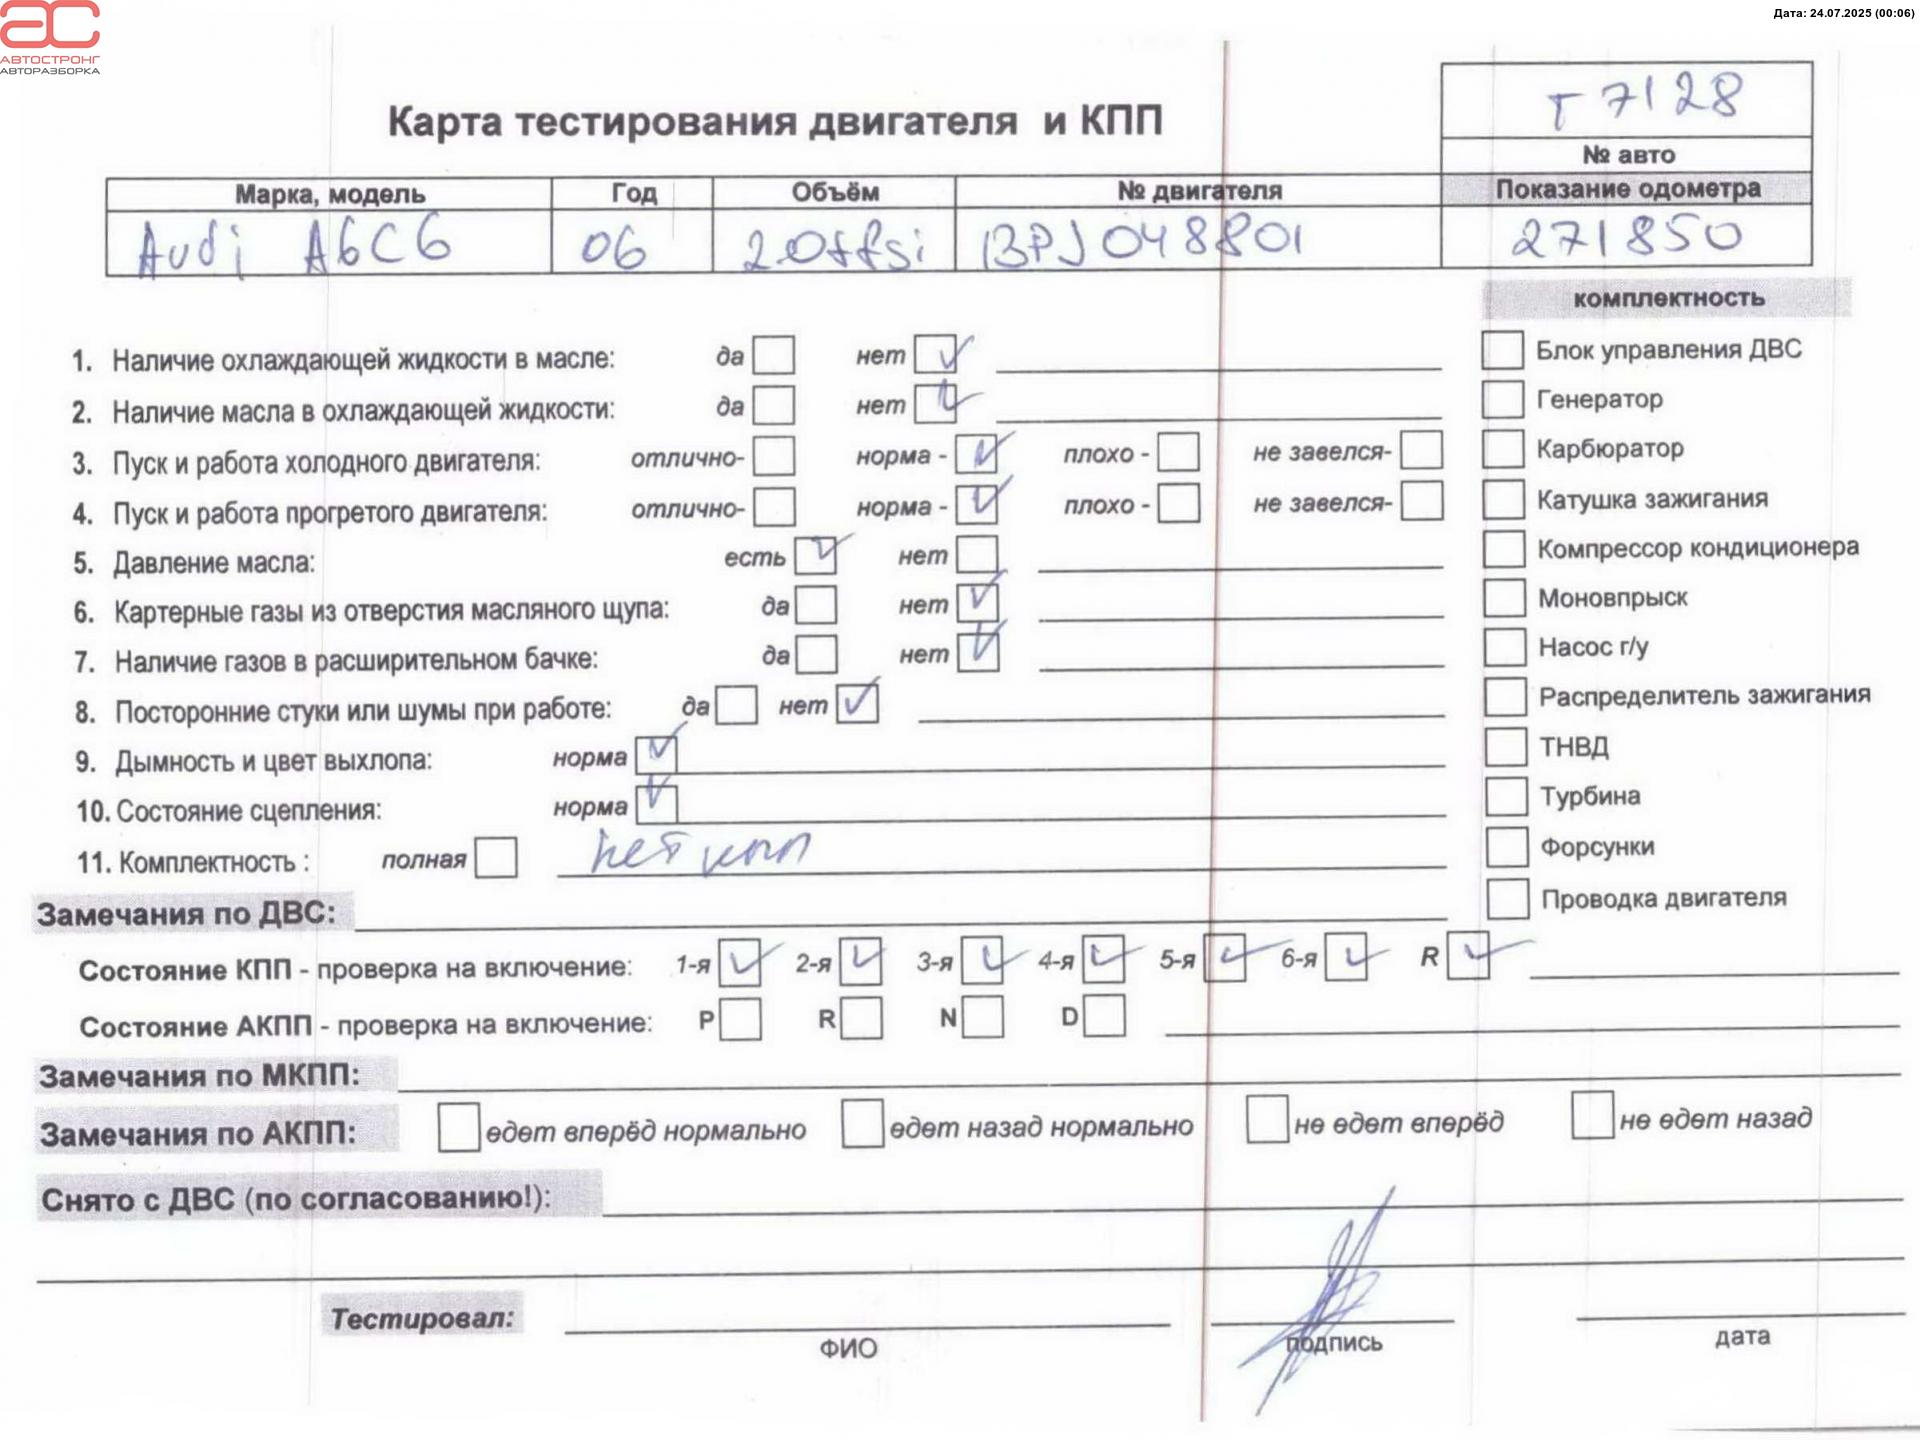 Дата: 24.07.2025 (00:06)
АС
АВТОСТРОНГ
АВТОРАЗБОРКА
Карта тестирования двигателя и КПП
т 7128
№ авто
Марка, модель Год Объём № двигателя Показание одометра
Audi A6C6 06 2.0tfsi BPJ048801 271850
комплектность
1. Наличие охлаждающей жидкости в масле: да нет ✓
2. Наличие масла в охлаждающей жидкости: да нет ✓
3. Пуск и работа холодного двигателя: отлично- норма - ✓ плохо - не завелся-
4. Пуск и работа прогретого двигателя: отлично- норма - ✓ плохо - не завелся-
5. Давление масла: есть ✓ нет
6. Картерные газы из отверстия масляного щупа: да нет ✓
7. Наличие газов в расширительном бачке: да нет ✓
8. Посторонние стуки или шумы при работе: да нет ✓
9. Дымность и цвет выхлопа: норма ✓
10. Состояние сцепления: норма ✓
11. Комплектность : полная нет кпп
Блок управления ДВС
Генератор
Карбюратор
Катушка зажигания
Компрессор кондиционера
Моновпрыск
Насос г/у
Распределитель зажигания
ТНВД
Турбина
Форсунки
Проводка двигателя
Замечания по ДВС:
Состояние КПП - проверка на включение: 1-я ✓ 2-я ✓ 3-я ✓ 4-я ✓ 5-я ✓ 6-я ✓ R ✓
Состояние АКПП - проверка на включение: P R N D
Замечания по МКПП:
Замечания по АКПП: едет вперёд нормально едет назад нормально не едет вперёд не едет назад
Снято с ДВС (по согласованию!):
Тестировал:
ФИО подпись дата